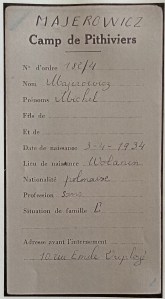 MAJEROWICZ
Camp de Pithiviers
N° d'ordre 115/4
Nom Majerowicz
Prénoms Michel
Fils de
Et de
Date de naissance 3-4-1934
Lieu de naissance Wolanin
Nationalité polonaise
Profession sans
Situation de famille C
Adresse avant l'internement
10 rue